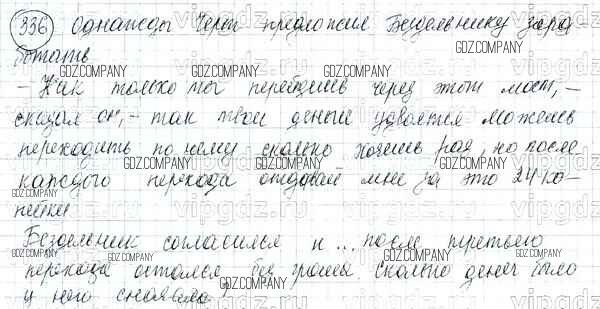 336 Однажды Черт предложил Бездельнику зара
ботать
GDZ.COMPANY GDZ.COMPANY GDZ.COMPANY GDZ.COMPANY
- Как только ты перейдешь через этот мост, -
сказал он, - так твои деньги удвоятся можешь
переходить по нему сколько хочешь раз, но после
GDZ.COMPANY GDZ.COMPANY GDZ.COMPANY GDZ.COMPANY
каждого перехода отдавай мне за это 24 ко-
пейки
Бездельник согласился и ... после третьего
GDZ.COMPANY GDZ.COMPANY GDZ.COMPANY GDZ.COMPANY
перехода остался без гроша. сколько денег было
у него сначала?
vipgdz.ru